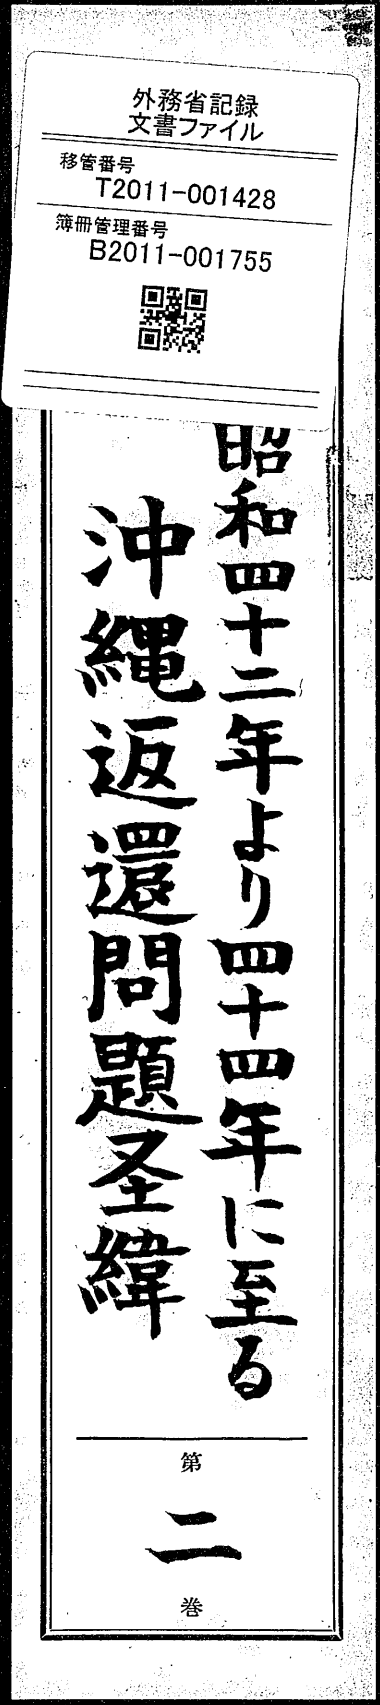 外務省記録
文書ファイル
移管番号
T2011-001428
簿冊管理番号
B2011-001755
昭和四十二年より四十四年に至る
沖縄返還問題圣緯
第
二
巻